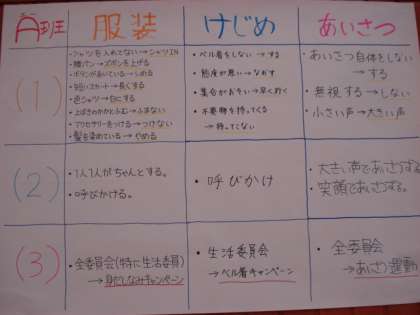 A班 服装 けじめ あいさつ
(1)
・シャツを入れてない→シャツIN
・腰パン→ズボンを上げる
・ボタンがあいている→しめる
・短いスカート→長くする
・色シャツ→白にする
・上ばきのかかとふむ→ふまない
・アクセサリーをつける→つけない
・髪を染めている→やめる
・ベル着をしない→する
・態度が悪い→なおす
・集合がおそい→早く行く
・不要物を持ってくる
→持ってこない
・あいさつ自体をしない
→する
・無視する→しない
・小さい声→大きい声
(2)
・1人1人がちゃんとする。
・呼びかける。
・呼びかけ
・大きい声であいさつする。
・笑顔であいさつする。
(3)
・全委員会(特に生活委員)
→身だしなみキャンペーン
・生活委員会
→ベル着キャンペーン
・全委員会
→あいさつ運動